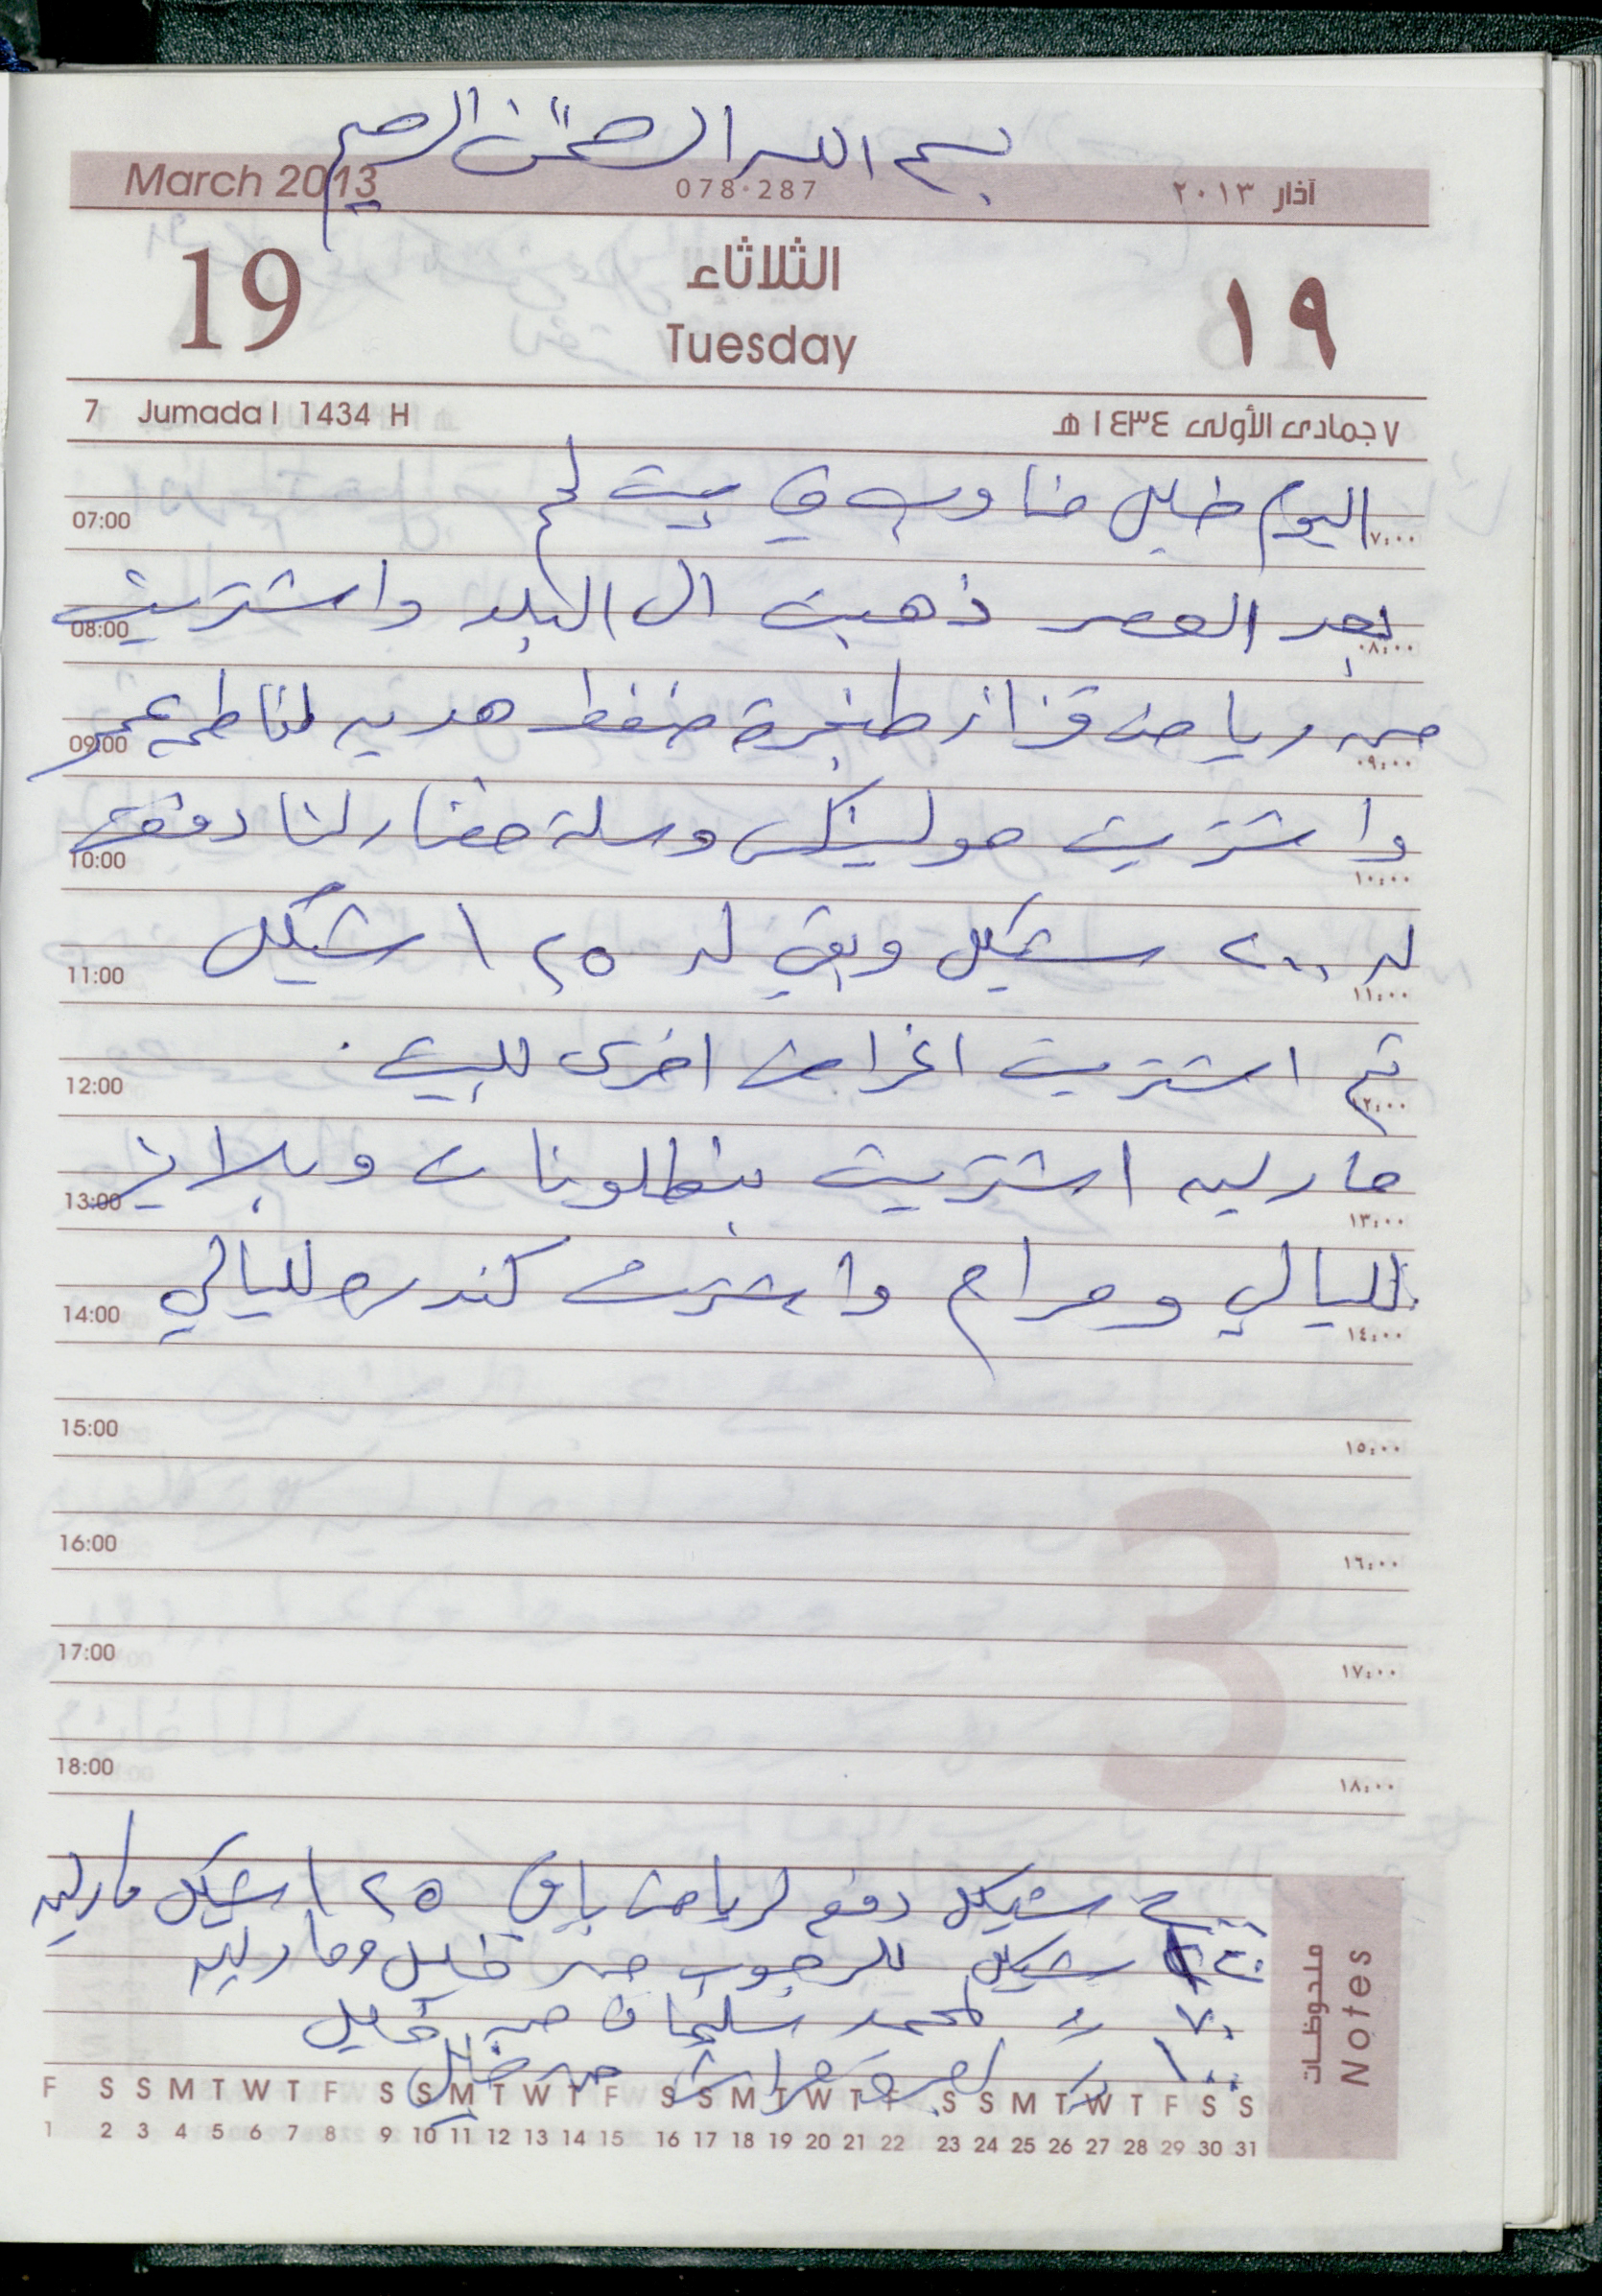 بسم الله الرحمن الرحيم
March 2013 078-287 آذار ٢٠١٣
19 الثلاثاء ١٩
Tuesday
7 Jumada I 1434 H ٧ جمادى الأولى ١٤٣٤ هـ
اليوم خليل مناوب في بيت لحم
07:00 ٠٧:٠٠
بعد العصر ذهبت الى البلد واشتريت
08:00 ٠٨:٠٠
من رياض قزاز طنجرة ضغط هديه لفاطمه عمرو
09:00 ٠٩:٠٠
واشتريت مولينكس وسلة خضار لنا دفعت
10:00 ١٠:٠٠
له ٢٠٠ شيكل وبقي له ١٢٥ شيكل
11:00 ١١:٠٠
ثم اشتريت اغراض اخرى للبيت .
12:00 ١٢:٠٠
مارليه اشتريت بنطلونات وبلايز
13:00 ١٣:٠٠
لليالي ومرام واشترت كندره لليالي
14:00 ١٤:٠٠
15:00 ١٥:٠٠
16:00 ١٦:٠٠
3
17:00 ١٧:٠٠
18:00 ١٨:٠٠
٢٠٠ شيكل دفع لرياض باقي ١٢٥ شيكل مارليه
شيكل للرجوب من خليل ومارليه
٧٠ // لمحمد سليمان من خليل
١٠٠ // من خليل
ملحوظات Notes
F S S M T W T F S S M T W T F S S M T W T F S S M T W T F S S
1 2 3 4 5 6 7 8 9 10 11 12 13 14 15 16 17 18 19 20 21 22 23 24 25 26 27 28 29 30 31